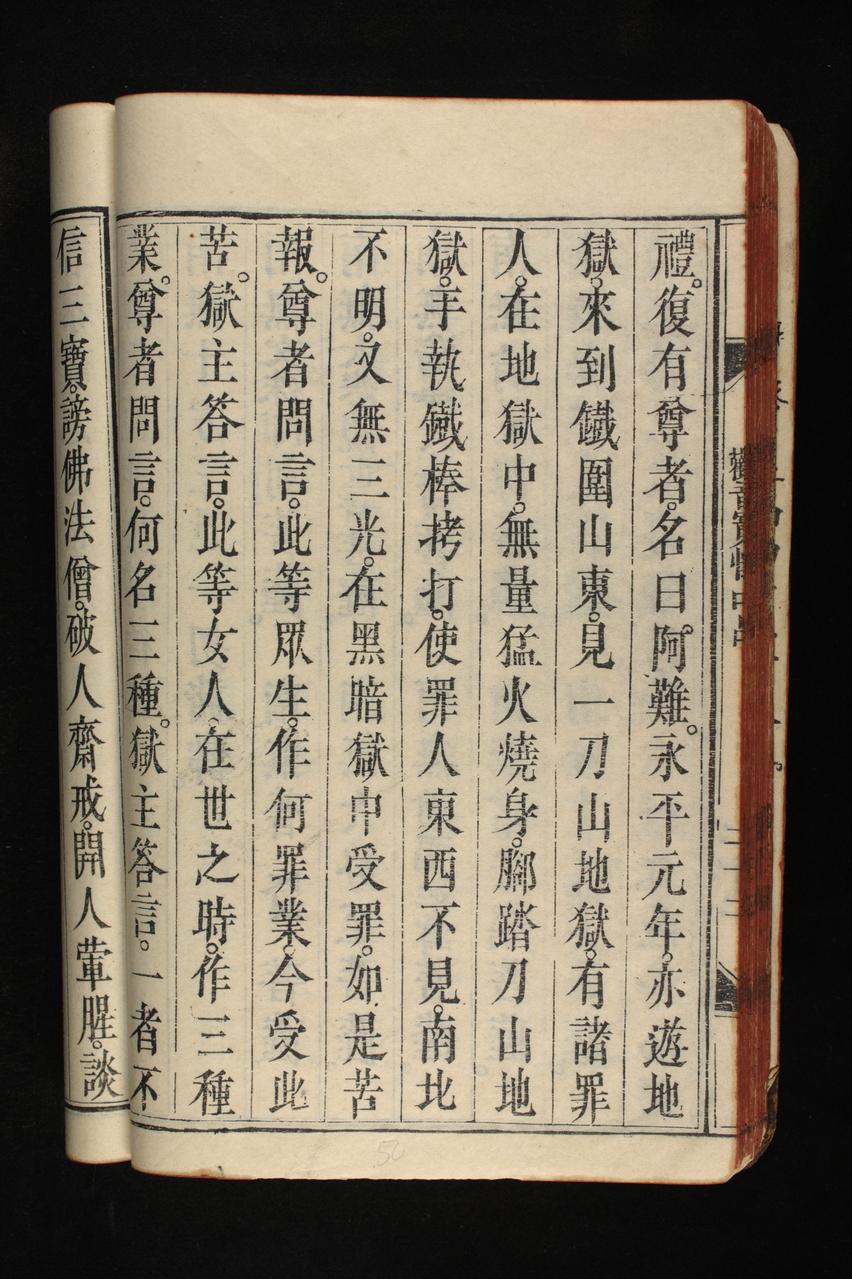 禮。復有尊者。名曰。阿難。永平元年。亦遊地
獄。來到鐵圍山東。見一刀山地獄。有諸罪
人。在地獄中。無量猛火燒身。腳踏刀山地
獄。手執鐵棒拷打。使罪人東西不見。南北
不明。又無三光。在黑暗獄中受罪。如是苦
報。尊者問言。此等眾生。作何罪業。今受此
苦。獄主答言。此等女人。在世之時。作三種
業。尊者問言。何名三種。獄主答言。一者不
信三寶。謗佛法僧。破人齋戒。開人葷腥。談